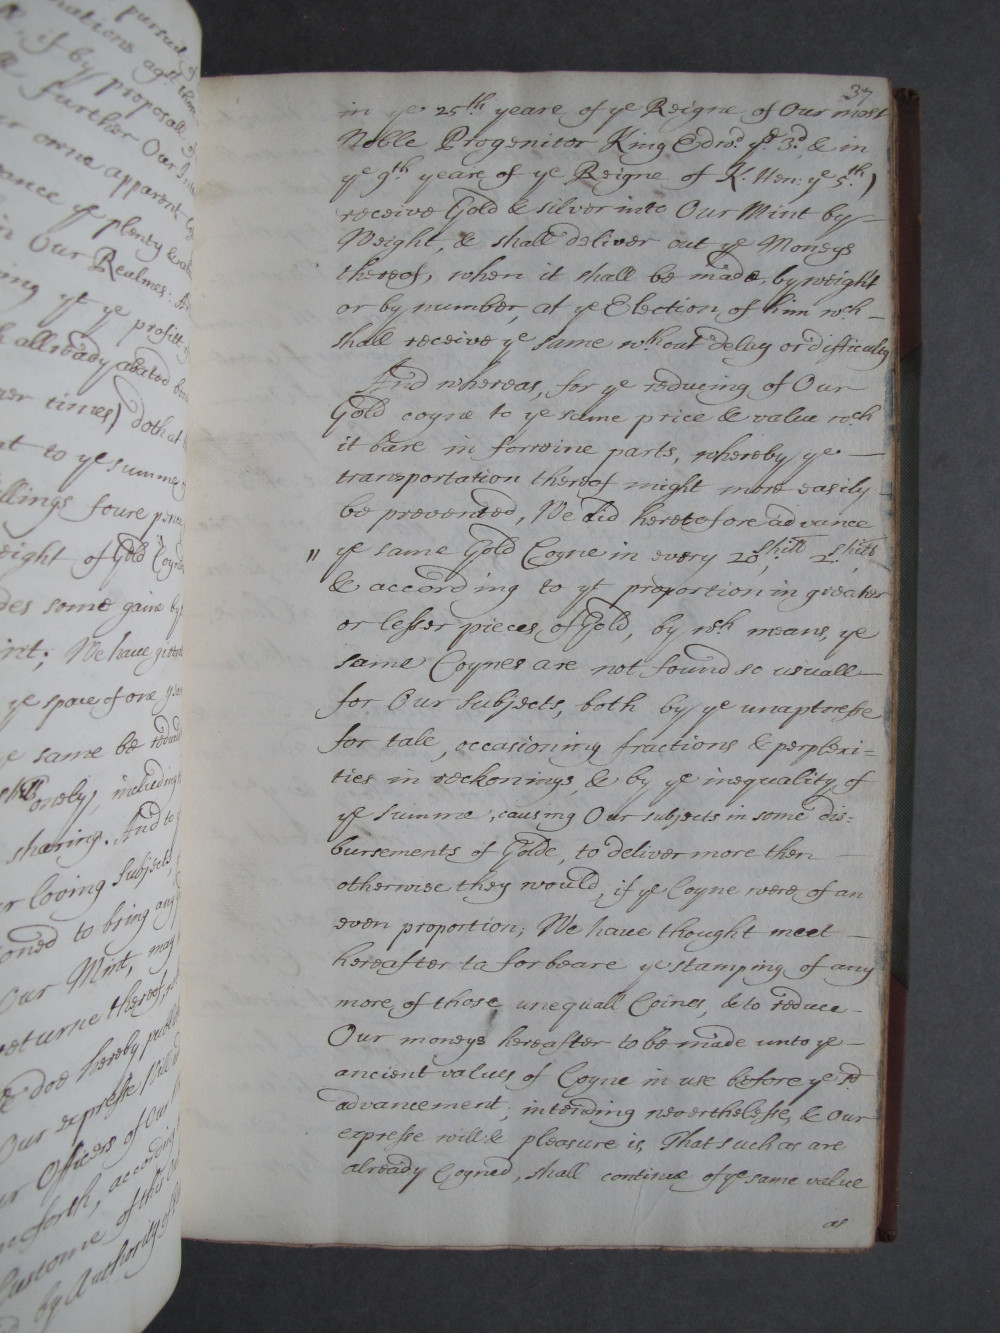 pursuit of
ations agst them
if by proposall of
further Our
r owne apparent
ance ye plenty &
in Our Realmes.
ing yt ye profitt
allready abated
er times) doth at
at to ye summe
llings foure pence
eight of Gold Coyne
des some gaine by
int; We have
ye space of one
e same be
onely, including
shering. And to
r loving Subjects,
oned to bring any
Our Mint, may
returne thereof,
doe hereby publish
Our expresse Will
r Officers of Our
forth, according
Custome of this
by Authority of
37
in ye 25th yeare of ye Reigne of Our most
Noble Progenitor King Edwd ye 3d, & in
ye 9th yeare of ye Reigne of K. Hen: ye 5th)
receive Gold & silver into Our Mint by
Weight, & shall deliver out ye Moneys
thereof, when it shall be made, by weight
or by number, at ye Election of him wch
shall receive ye same wthout delay or difficulty
And whereas, for ye reducing of Our
Gold coyne to ye same price & value wch
it bare in forreine parts, whereby ye
transportation thereof might more easily
be prevented, We did heretofore advance
" ye same Gold Coyne in every 20 shill 2 shills,
& according to yt proportion in greater
or lesser pieces of Gold, by wch means, ye
same Coynes are not found so usuall
for Our Subjects, both by ye unaptnesse
for tale, occasioning fractions & perplexi=
ties in reckonings, & by ye inequality of
ye summe, causing Our subjects in some dis=
bursements of Golde, to deliver more then
otherwise they would, if ye Coyne were of an
even proportion; We have thought meet
hereafter to forbeare ye stamping of any
more of those unequall Coines, & to reduce
Our moneys hereafter to be made unto ye
ancient values of Coyne in use before ye sd
advancement; intending neverthelesse, & Our
expresse will & pleasure is, That such as are
already Coyned, shall continue of ye same value
as